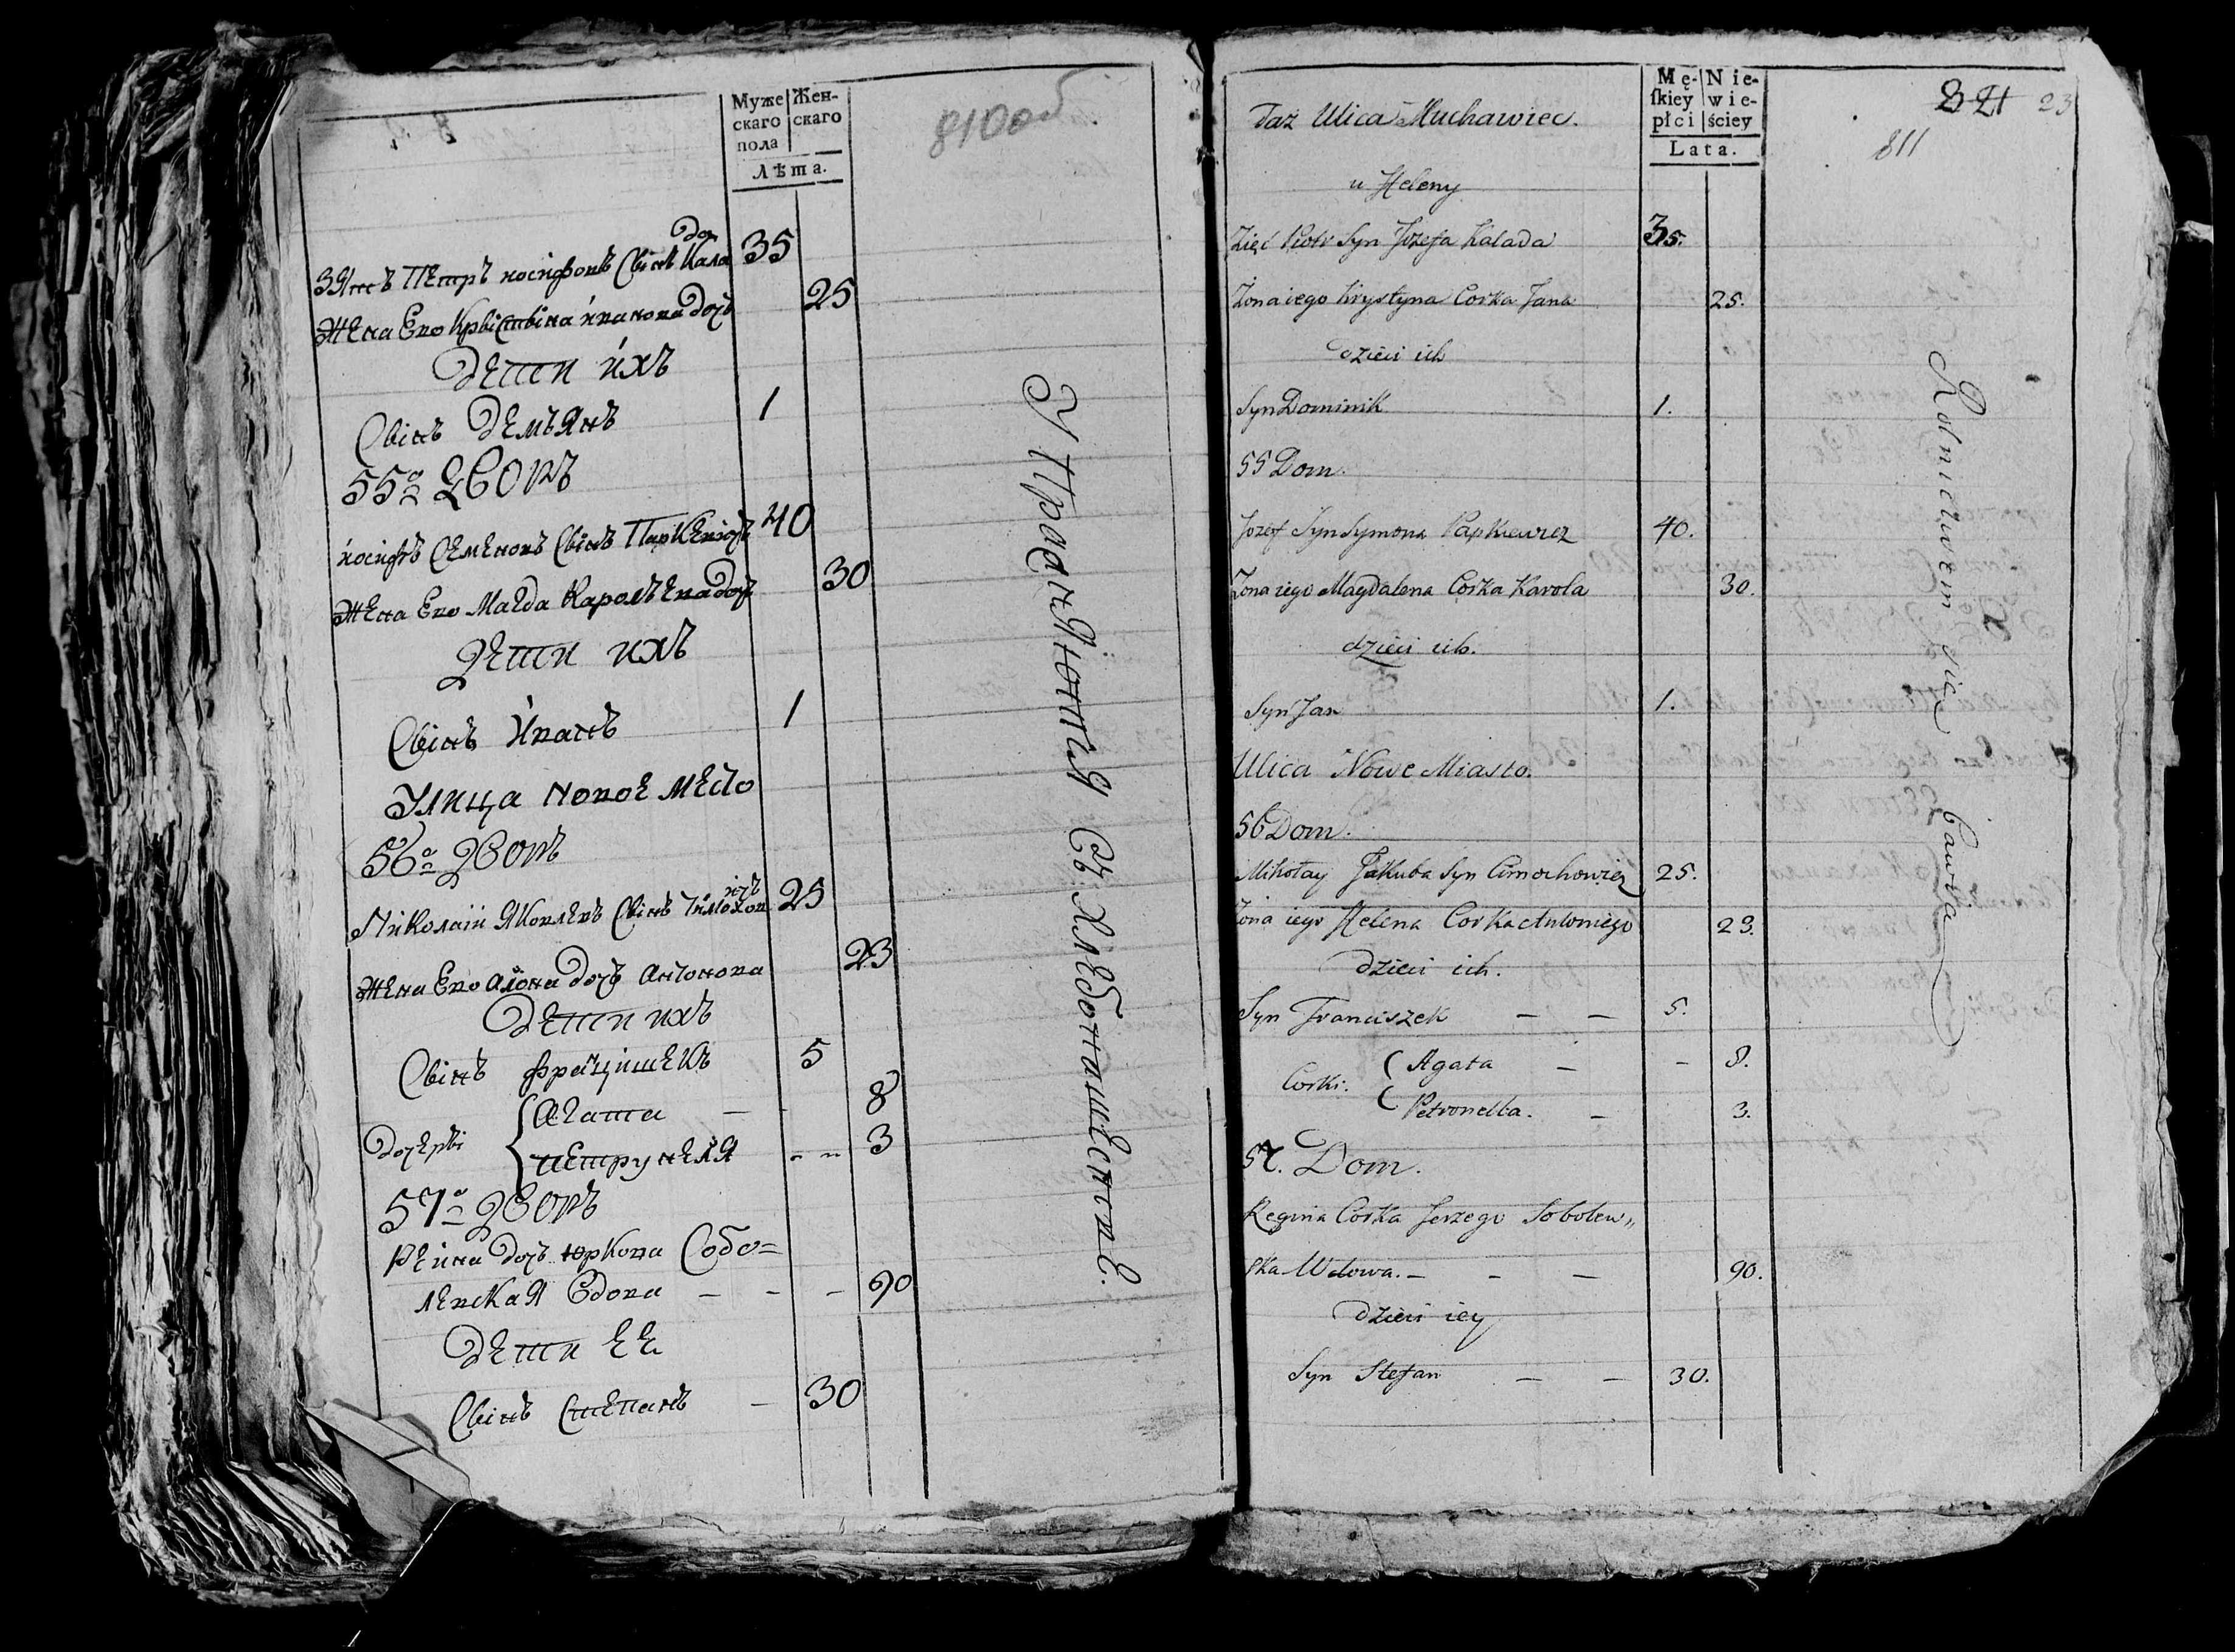 Муже
скаго
пола
Жен-
скаго
Лѣта.
810 об
Зять Петръ иосифовъ Сынъ Кала
да 35
Жена Ево Крыстына ивановa дочь 25
Дети ихъ
Сынъ Демьянъ 1
55й Дворъ
иосифъ Семеновъ Сынъ Папкевичъ 40
Жена Ево Магда Каролева дочь 30
Дети ихъ
Сынъ Иванъ 1
Улица Новое место
56й Дворъ
Николай Яковлевъ Сынъ Тимохов
ичъ 25
Жена Ево алона дочь антонова 23
Дети ихъ
Сынъ францишекъ 5
Дочеры { Агата — 8
петрунеля - - 3
57й Дворъ
Регина дочь юркова Собо=
левская Вдова — - — 90
Дети Ее
Сынъ Степанъ — 30
Упраняютия Съ Хлебопашествe.
Taż Ulica Muchawiec.
Mę-
ſkiey
płci
Nie-
wie-
ściey
Lata.
821 23
811
u Heleny
Zięć Piotr Syn Jozefa Kalada 35.
Żona iego Krystyna Corka Jana 25.
dzieci ich
Syn Dominik 1.
55 Dom.
Jozef Syn Symona Papkiewicz 40.
Żona iego Magdalena Corka Karola 30.
dzieci ich.
Syn Jan 1.
Ulica Nowe Miasto.
56 Dom.
Mikołay Jakuba Syn Cimochowicz 25.
Żona iego Helena Corka Antoniego 23.
dzieci ich.
Syn Franciszek — — 5.
Corki. ( Agata — - 8.
( Petronella. — 3.
57. Dom.
Regina Corka Jerzego Sobolew„
ſka Wdowa. — - — 90.
dzieci iey
Syn Stefan — — 30.
Rolnictwem się bawią